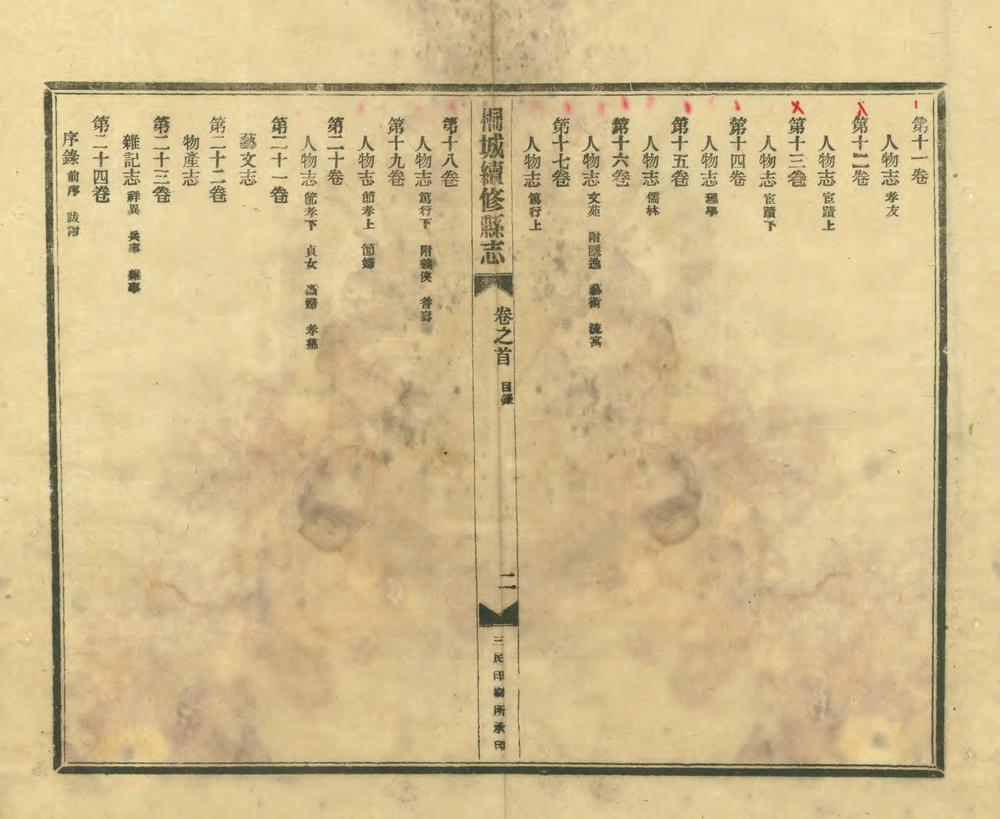 第十一卷
人物志 孝友
第十二卷
人物志 宦蹟上
第十三卷
人物志 宦蹟下
第十四卷
人物志 理學
第十五卷
人物志 儒林
第十六卷
人物志 文苑 附隱逸 藝術 流寓
第十七卷
人物志 篤行上
桐城續修縣志
卷之首 目錄
二
三民印刷所承印
第十八卷
人物志 篤行下 附義俠 耆壽
第十九卷
人物志 節孝上 節婦
第二十卷
人物志 節孝下 貞女 烈婦 孝婦
第二十一卷
藝文志
第二十二卷
物產志
第二十三卷
雜記志 祥異 兵事 雜事
第二十四卷
序錄 前序 跋附